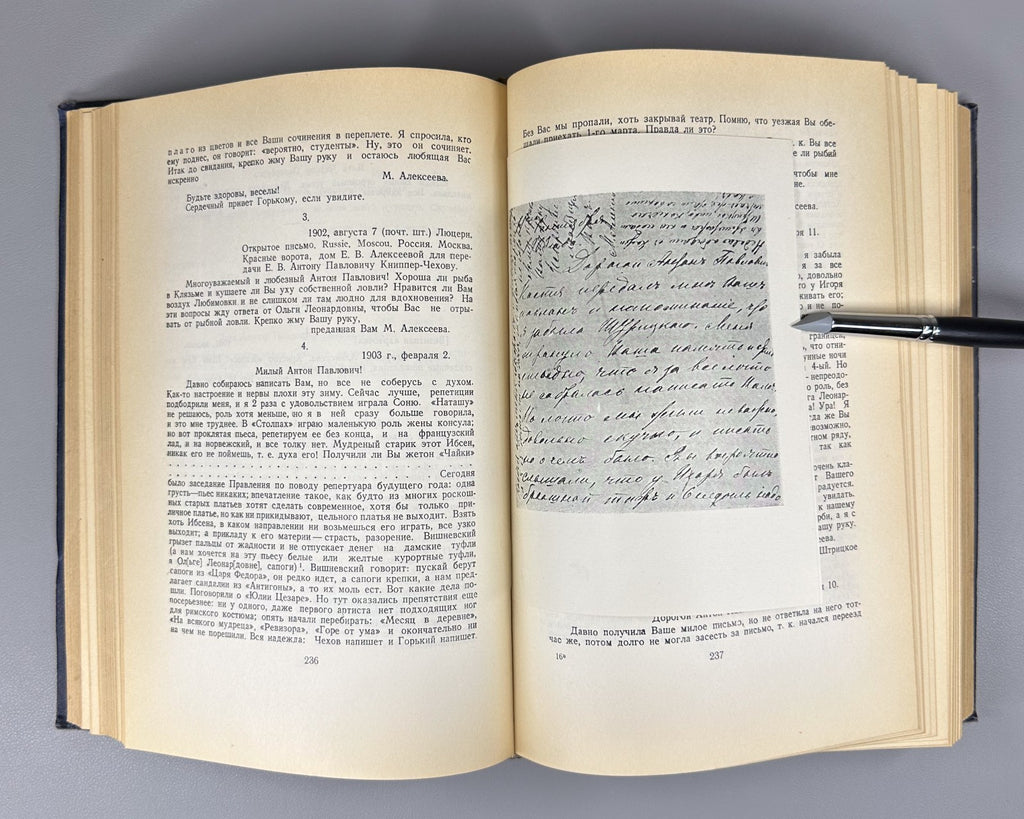 плато из цветов и все Ваши сочинения в переплете. Я спросила, кто
ему поднес, он говорит: «вероятно, студенты». Ну, это он сочиняет.
Итак до свидания, крепко жму Вашу руку и остаюсь любящая Вас
искренно
М. Алексеева.
Будьте здоровы, веселы!
Сердечный привет Горькому, если увидите.
3.
1902, августа 7 (почт. шт.) Люцерн.
Открытое письмо, Russie, Moscou, Россия. Москва.
Красные ворота, дом Е. В. Алексеевой для пере-
дачи Е. В. Антону Павловичу Книппер-Чехову.
Многоуважаемый и любезный Антон Павлович! Хороша ли рыба
в Клязьме и кушаете ли Вы уху собственной ловли? Нравится ли Вам
воздух Любимовки и не слишком ли там людно для вдохновения? На
эти вопросы жду ответа от Ольги Леонардовны, чтобы Вас не отры-
вать от рыбной ловли. Крепко жму Вашу руку,
преданная Вам М. Алексеева.
4.
1903 г., февраля 2.
Милый Антон Павлович!
Давно собираюсь написать Вам, но все не соберусь с духом.
Как-то настроение и нервы плохи эту зиму. Сейчас лучше, репетиции
подбодрили меня, и я 2 раза с удовольствием играла Соню. «Наташу»
не решаюсь, роль хотя меньше, но я в ней сразу больше говорила,
и это мне труднее. В «Столпах» играю маленькую роль жены консула;
но вот проклятая пьеса, репетируем ее без конца, и на французский
лад, и на норвежский, и все толку нет. Мудреный старик этот Ибсен,
никак его не поймешь, т. е. духа его! Получили ли Вы жетон «Чайки»
. . . . . . . . . . . . . . . . . . . . . . . . . . . . Сегодня
было заседание Правления по поводу репертуара будущего года: одна
грусть—пьес никаких; впечатление такое, как будто из многих роскош-
ных старых платьев хотят сделать современное, хотя бы только при-
личное платье, но как ни прикидывают, цельного платья не выходит. Взять
хоть Ибсена, в каком направлении ни возьмешься его играть, все узко
выходит; а прикладу к его материи—страсть, разорение. Вишневский
грызет пальцы от жадности и не отпускает денег на дамские туфли
(а нам хочется на эту пьесу белые или желтые курортные туфли,
а Ол[ьге] Леонар[довне], сапоги)¹. Вишневский говорит: пускай берут
сапоги из «Царя Федора», он редко идет, а сапоги крепки, а нам пред-
лагает сандалии из «Антигоны», а то их моль ест. Вот какие дела по-
шли. Поговорили о «Юлии Цезаре». Но тут оказались препятствия еще
посерьезнее: ни у одного, даже первого артиста нет подходящих ног
для римского костюма; опять начали перебирать: «Месяц в деревне»,
«На всякого мудреца», «Ревизора», «Горе от ума» и окончательно ни
на чем не порешили. Вся надежда: Чехов напишет и Горький напишет.
236
Без Вас мы пропали, хоть закрывай театр. Помню, что уезжая Вы обе-
щали приехать 1-го марта. Правда ли это?
к. Вы все
е ли рыбий
чтобы мне
не.
сеева.
ря 11.
я забыла
я за все
, довольно
о у Игоря
живать его;
о и не по-
границей,
, что отни-
унные ночи
4-ый. Но
-непреодо-
роль, без
Леонар-
а! Ура! Я
гда же Вы
возможно,
тном ряду,
так как
очень кла-
т Вашего
радуется.
увидать.
к нашему
рби, а я с
ашу руку.
еева.
Штрицкое
10.
Дорогой Антон Павлович
Костя передалъ мнѣ Вашъ
поклонъ и напоминаніе, что
я забыла Штрицкаго. Меня
тронула Ваша память и
стыдно, что я за все лѣто
не собралась написать Вамъ.
Но лѣто мы провели неважно,
довольно скучно, и писать
не о чемъ было. А Вы вѣроятно
слышали, что у Игоря былъ
брюшной тифъ и 6 недѣль надо
Дорогой Антон
Давно получила Ваше милое письмо, но не ответила на него тот-
час же, потом долго не могла засесть за письмо, т. к. начался переезд
16*
237